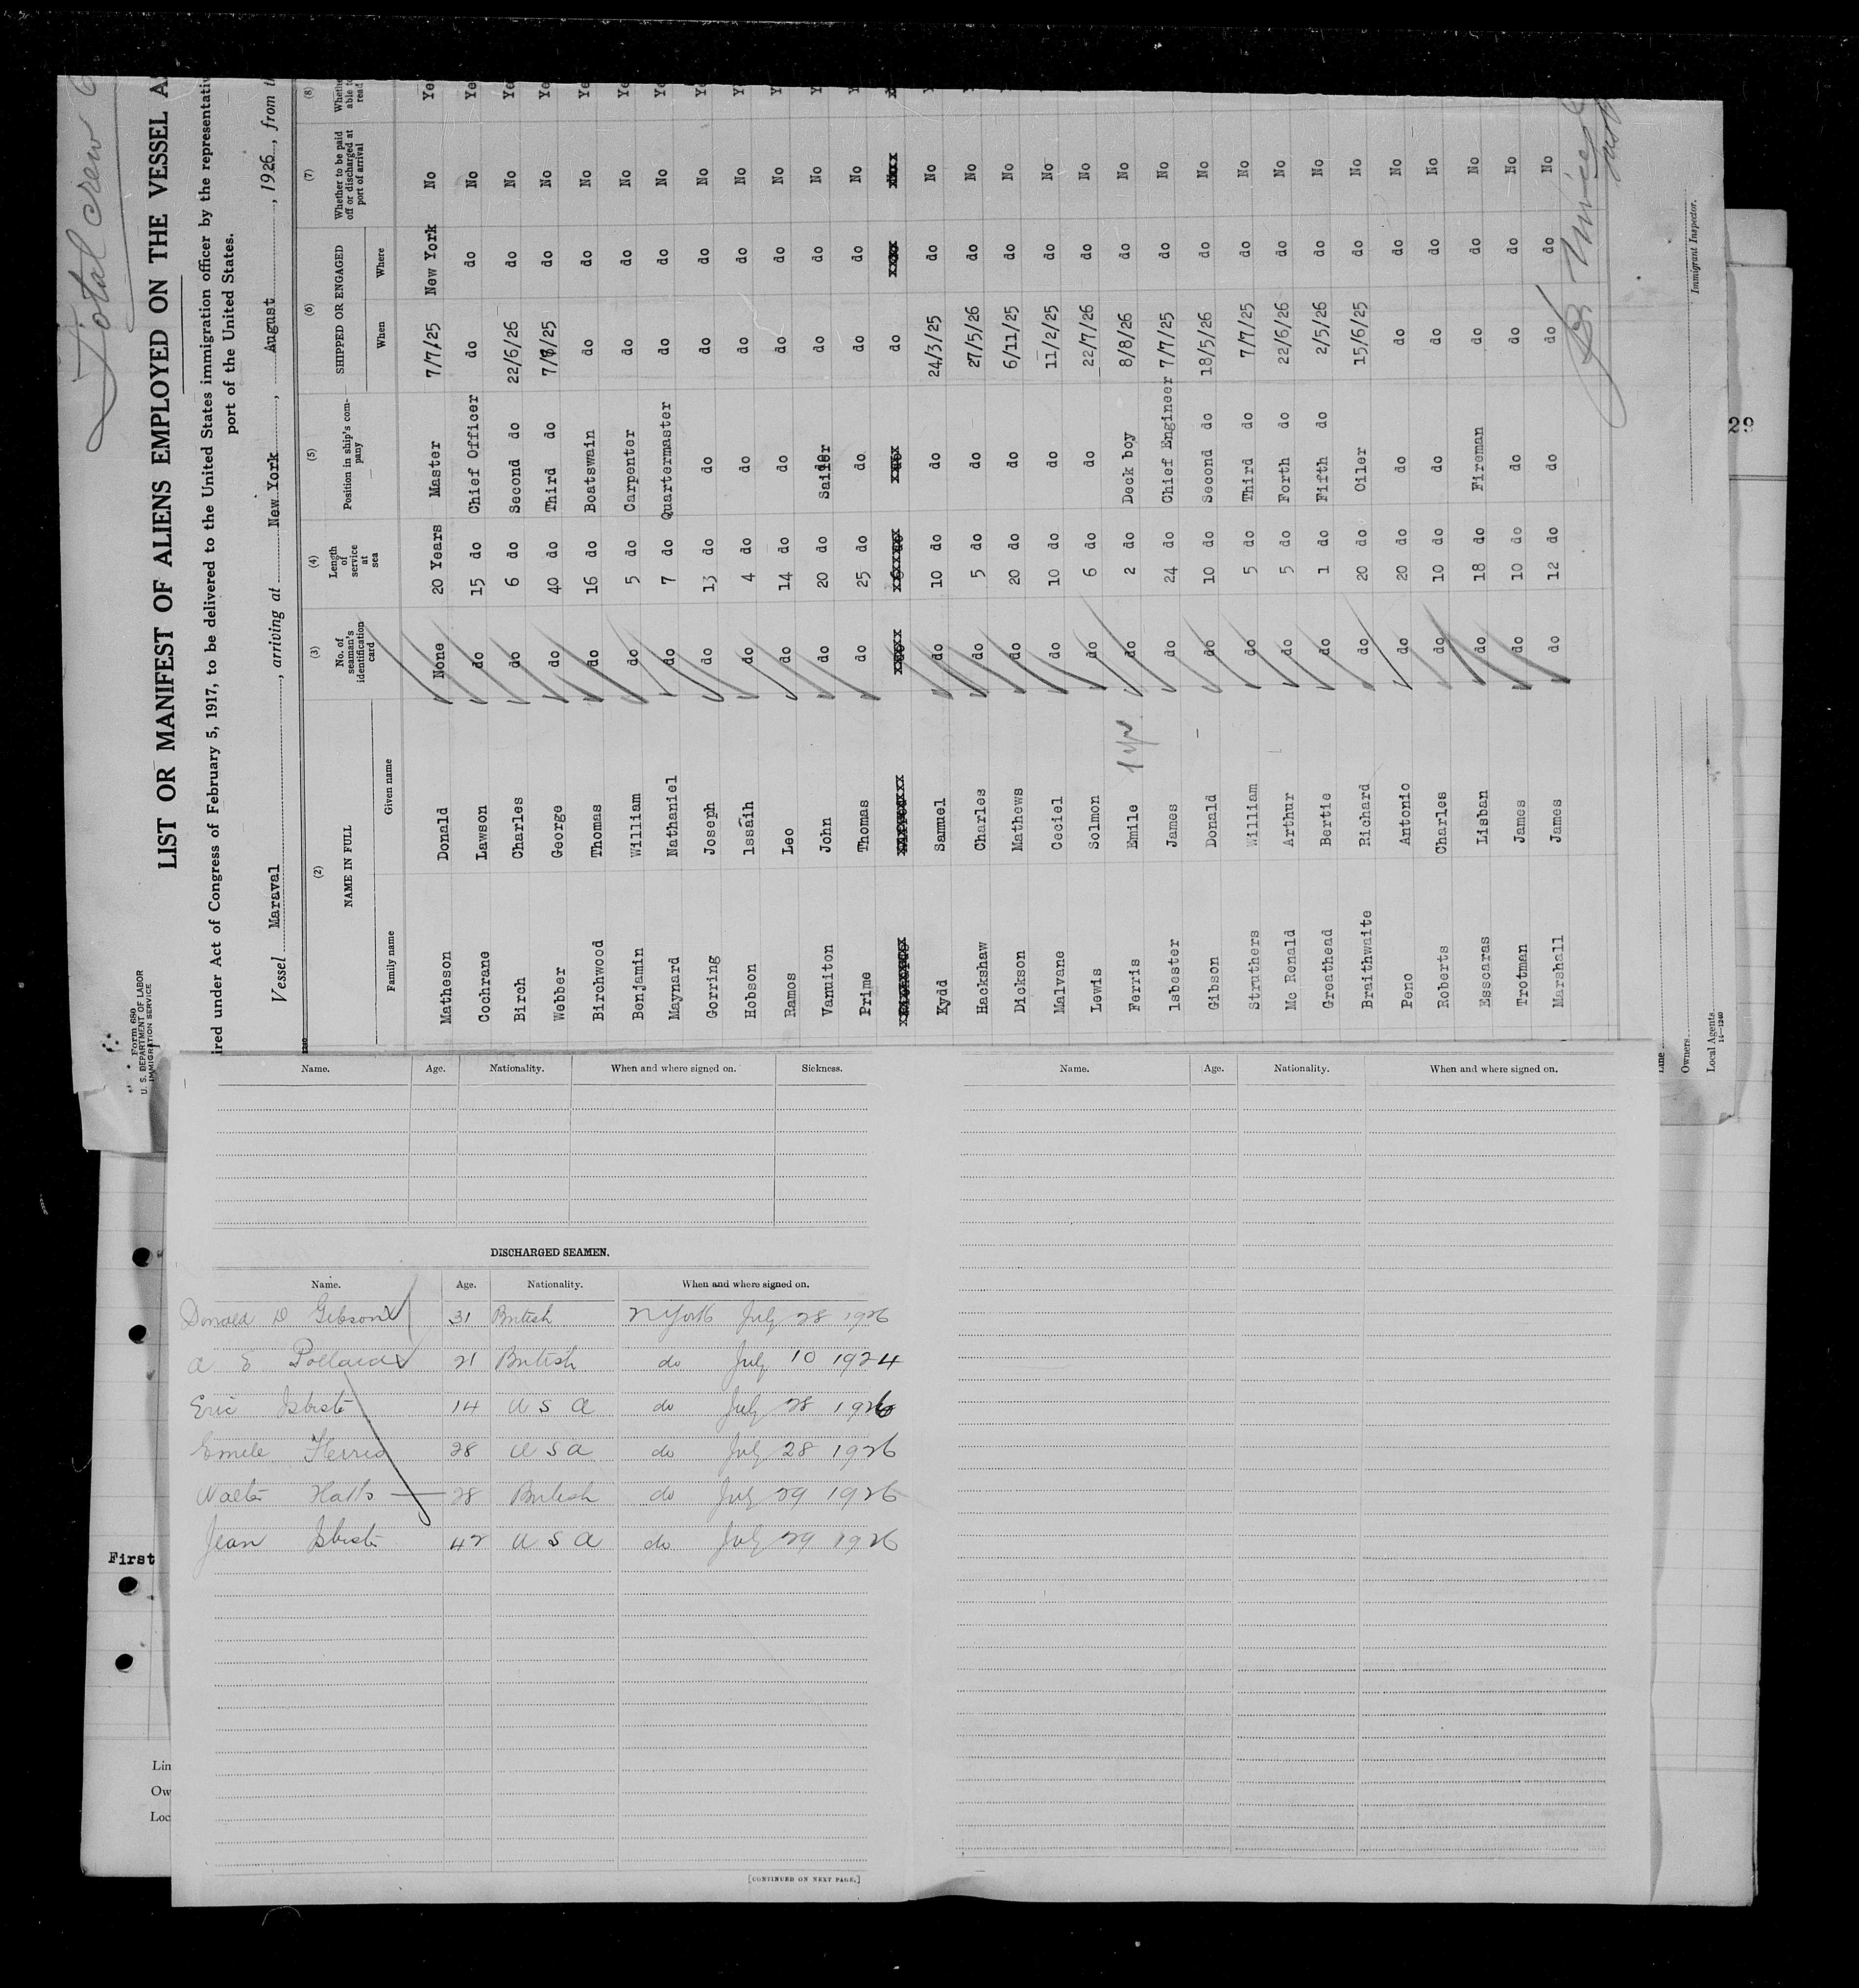 Total crew 6
Form 680
U. S. DEPARTMENT OF LABOR
IMMIGRATION SERVICE
LIST OR MANIFEST OF ALIENS EMPLOYED ON THE VESSEL A
ired under Act of Congress of February 5, 1917, to be delivered to the United States immigration officer by the representativ
port of the United States.
Vessel Maraval, arriving at New York, August, 1926, from t
(2) (3) (4) (5) (6) (7) (8)
NAME IN FULL No. of seaman's identification card Length of service at sea Position in ship's com-pany SHIPPED OR ENGAGED Whether to be paid off or discharged at port of arrival Whethe able t read
Family name Given name When Where
Matheson Donald None 20 Years Master 7/7/25 New York No Ye
Cochrane Lawson do 15 do Chief Officer do do No Ye
Birch Charles do 6 do Second do 22/6/26 do No Ye
Webber George do 40 do Third do 7/7/25 do No Ye
Birchwood Thomas do 16 do Boatswain do do No Ye
Benjamin William do 5 do Carpenter do do No Ye
Maynard Nathaniel do 7 do Quartermaster do do No Ye
Gorring Joseph do 13 do do do do No Ye
Hobson lssaih do 4 do do do do No Y
Ramos Leo do 14 do do do do No Y
Vanuiton John do 20 do Sailer do do No Y
Prime Thomas do 25 do do do do No Y
do
Kydd Samuel do 10 do do 24/3/25 do No Y
Hackshaw Charles do 5 do do 27/5/26 do No
Dickson Mathews do 20 do do 6/11/25 do No
Malvane Ceciel do 10 do do 11/2/25 do No
Lewis Solmon do 6 do do 22/7/26 do No
Ferris Emile 1 yr do 2 do Deck boy 8/8/26 do No
lsbester James do 24 do Chief Engineer 7/7/25 do No
Gibson Donald do 10 do Second do 18/5/26 do No
Struthers William do 5 do Third do 7/7/25 do No
Mc Renald Arthur do 5 do Forth do 22/6/26 do No
Greathead Bertie do 1 do Fifth do 2/5/26 do No
Braithwaite Richard do 20 do Oiler 15/6/25 do No
Peno Antonio do 20 do do do do No
Roberts Charles do 10 do do do do No
Esscaras Lisban do 18 do Fireman do do No
Trotman James do 10 do do do do No
Marshall James do 12 do do do do No
Immigrant Inspector.
Line
Owners
Local Agents
14—1240
Name. Age. Nationality. When and where signed on. Sickness.
DISCHARGED SEAMEN.
Name. Age. Nationality. When and where signed on.
Donald D Gibson 31 British N York July 28 1926
A E Pollard 21 British do July 10 1924
Eric Isbister 14 U S A do July 28 1926
Emile Ferris 28 U S A do July 28 1926
Walter 28 British do July 29 1926
Jean Isbister 42 U S A do July 29 1926
[CONTINUED ON NEXT PAGE.]
Name. Age. Nationality. When and where signed on.
First
Lin
Ow
Loc